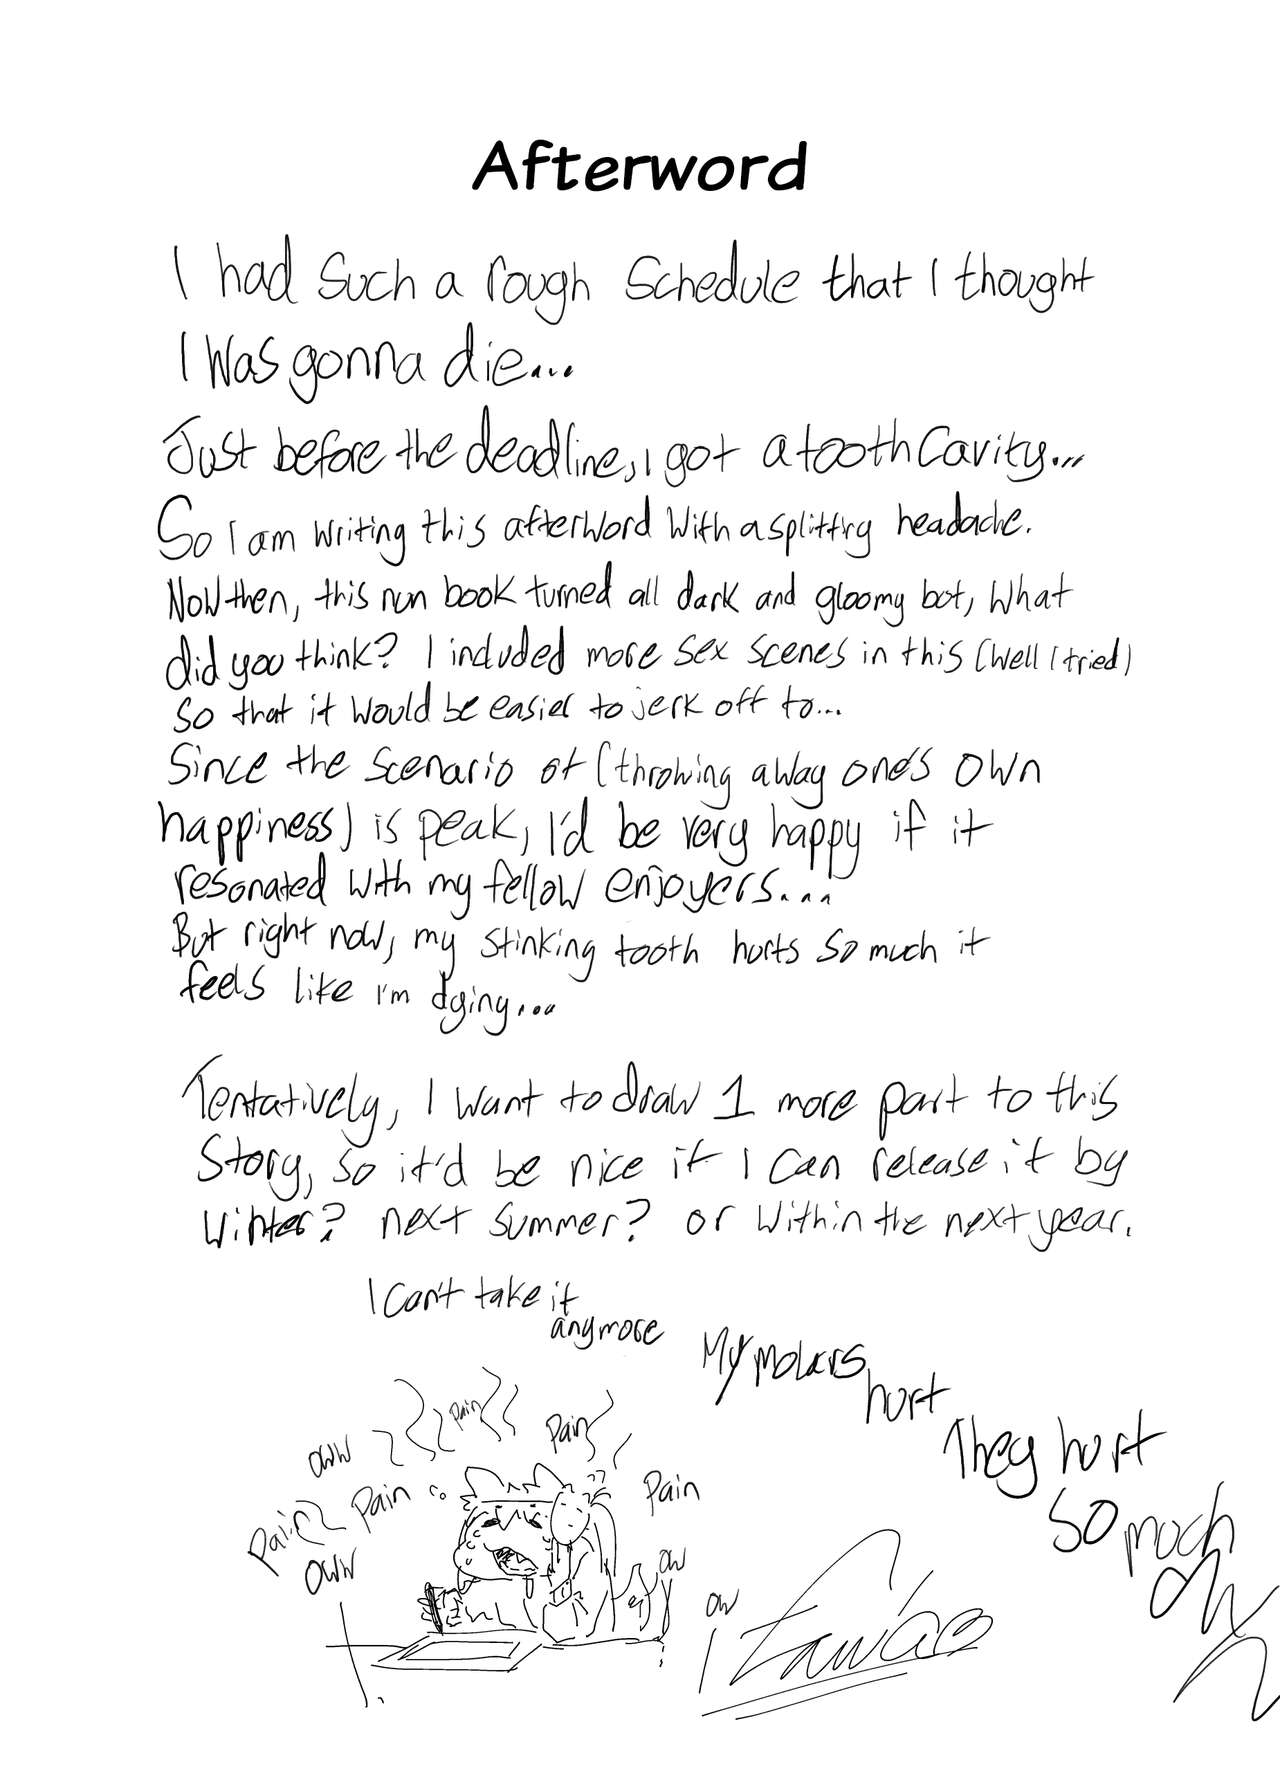 Afterword
I had such a rough schedule that I thought
I was gonna die...
Just before the deadline, I got a tooth cavity...
So I am writing this afterword with a splitting headache.
Now then, this nun book turned all dark and gloomy but, what
did you think? I included more sex scenes in this (well I tried)
so that it would be easier to jerk off to...
Since the scenario of (throwing away one's own
happiness) is peak, I'd be very happy if it
resonated with my fellow enjoyers...
But right now, my stinking tooth hurts so much it
feels like I'm dying...
Tentatively, I want to draw 1 more part to this
story, so it'd be nice if I can release it by
winter? next summer? or within the next year.
I can't take it
anymore
My molars
hurt
They hurt
so much
oww
pain
pain
oww
pain
pain
pain
oww
ow
ow